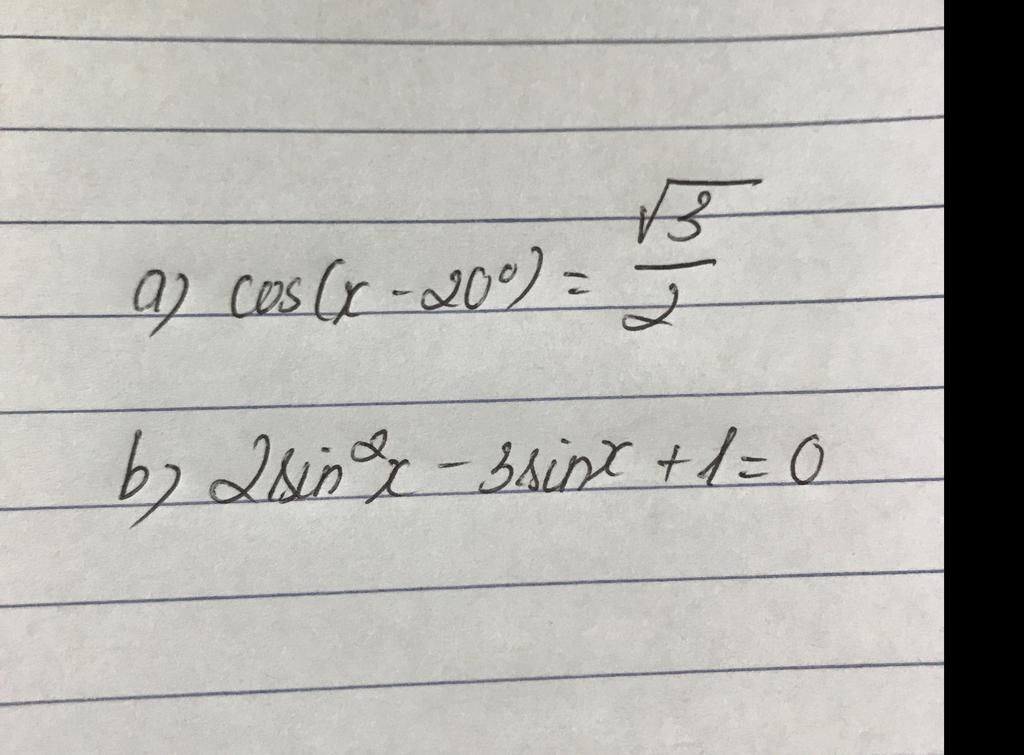 a) cos(x - 20°) = √3/2
b) 2sin²x - 3sinx + 1 = 0